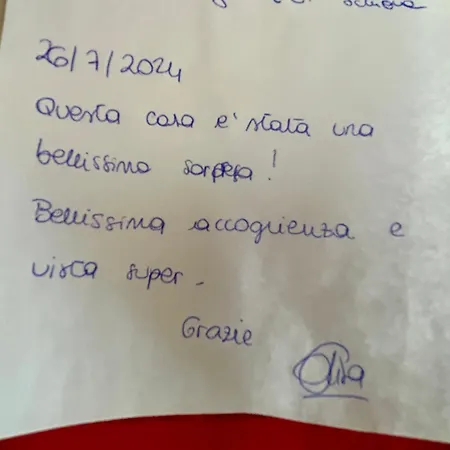 26/7/2024
Questa casa e' stata una
bellissima sorpresa!
Bellissima accoglienza e
vista super.
Grazie